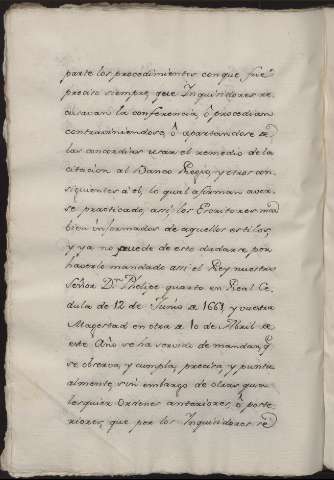 parte los procedimientos con que fué
preciso siempre, que Inquisidores re
cusavan la conferencia, ó procedian
contraviniendose, ó apartandose de
las concordias usar el remedio de la
citacion al Banco Regio, y otros con
siguientes á él, lo qual afirman aver
se practicado, assi los Escritores mas
bien informados de aquellos estilos,
y ya no puede de esto dudarse, por
haverlo mandado assi el Rey nuestro
Señor Dn. Phelipe quarto en Real Ce
dula de 12 de Junio de 1661, y vuestra
Magestad en otra de 10 de Abril de
este Año se ha servido de mandar, q
se observe, y cumpla, precisa, y puntu
almente, sin embargo de otras, qua
lesquier Ordenes anteriores, ó poste
riores, que por los Inquisidores se